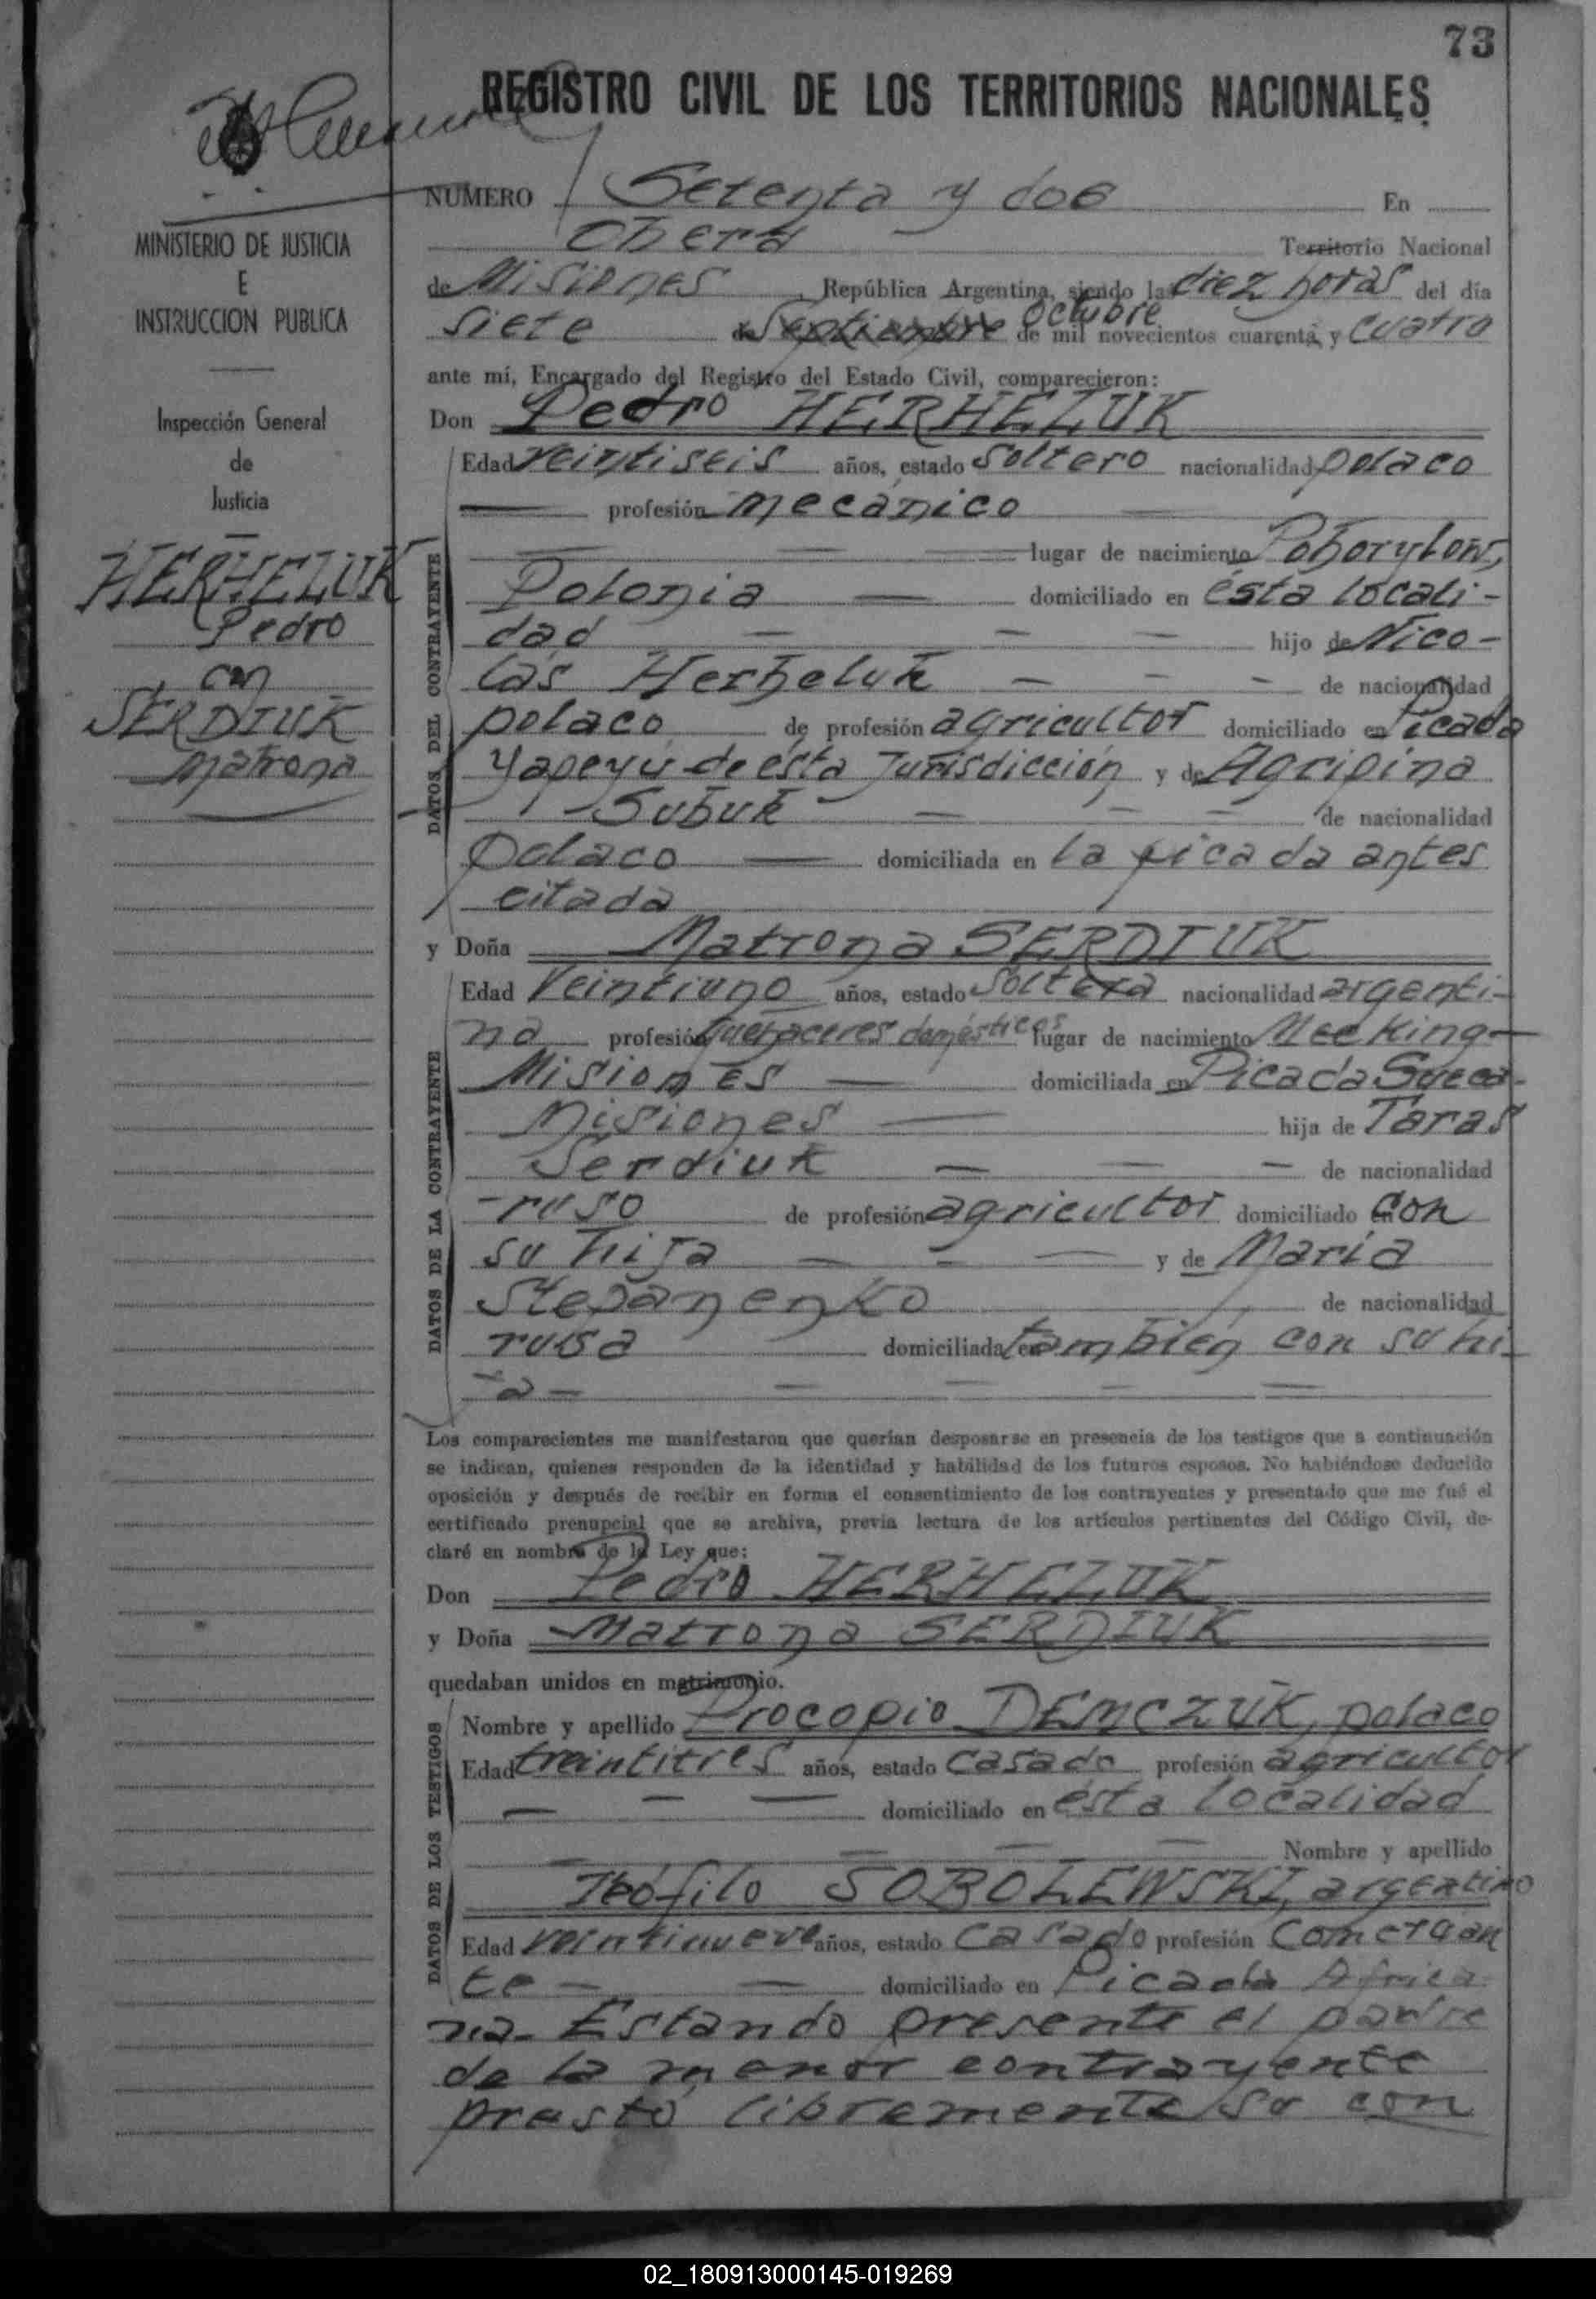 73
REGISTRO CIVIL DE LOS TERRITORIOS NACIONALES
NUMERO Setenta y dos En
Oberá Territorio Nacional
de Misiones, República Argentina, siendo las diez horas del día
siete de Septiembre Octubre de mil novecientos cuarenta y cuatro
ante mí, Encargado del Registro del Estado Civil, comparecieron:
Don Pedro HERHELUK
Edad veintiseis años, estado soltero nacionalidad polaco
profesión mecánico
lugar de nacimiento Pohorylow,
Polonia domiciliado en ésta locali-
dad hijo de Nico-
lás Herheluk de nacionalidad
polaco de profesión agricultor domiciliado en Picada
Yapeyú de ésta Jurisdicción y de Agripina
Subuk de nacionalidad
polaco domiciliada en la picada antes
citada
y Doña Matrona SERDIUK
Edad Veintiuno años, estado soltera nacionalidad argenti-
na profesión quehaceres domésticos lugar de nacimiento Mecking-
Misiones domiciliada en Picada Sueca-
Misiones hija de Taras
Serdiuk de nacionalidad
ruso de profesión agricultor domiciliado en con
su hija y de María
Stepanenko de nacionalidad
rusa domiciliada en también con su hi-
ja-
Los comparecientes me manifestaron que querían desposarse en presencia de los testigos que a continuación
se indican, quienes responden de la identidad y habilidad de los futuros esposos. No habiéndose deducido
oposición y después de recibir en forma el consentimiento de los contrayentes y presentado que me fué el
certificado prenupcial que se archiva, previa lectura de los artículos pertinentes del Código Civil, de-
claré en nombre de la Ley que:
Don Pedro HERHELUK
y Doña Matrona SERDIUK
quedaban unidos en matrimonio.
Nombre y apellido Procopio DEMCZUK, polaco
Edad treintitres años, estado casado profesión agricultor
domiciliado en ésta localidad
Nombre y apellido
Teófilo SOBOLEWSKI, argentino
Edad veintinueve años, estado casado profesión comercian
te- domiciliado en Picada Africa
na- Estando presente el padre
de la menor contrayente
prestó libremente su con
MINISTERIO DE JUSTICIA
E
INSTRUCCION PUBLICA
Inspección General
de
Justicia
HERHELUK
Pedro
con
SERDIUK
Matrona
DATOS DEL CONTRAYENTE
DATOS DE LA CONTRAYENTE
DATOS DE LOS TESTIGOS
02_180913000145-019269